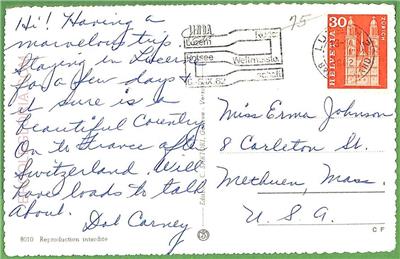 Hi! Having a
marvelous trip.
Staying in Lucerne
for a few days &
it sure is a
beautiful Country
On to France after
Switzerland. Will
have loads to talk
about.
Dot Carney
8010 Reproduction interdite
75-
Luzern
Rotsee
Weltmeister
30
HELVETIA
ZÜRICH
Miss Erma Johnson
8 Carleton St.
Methuen, Mass.
U. S. A.
C F